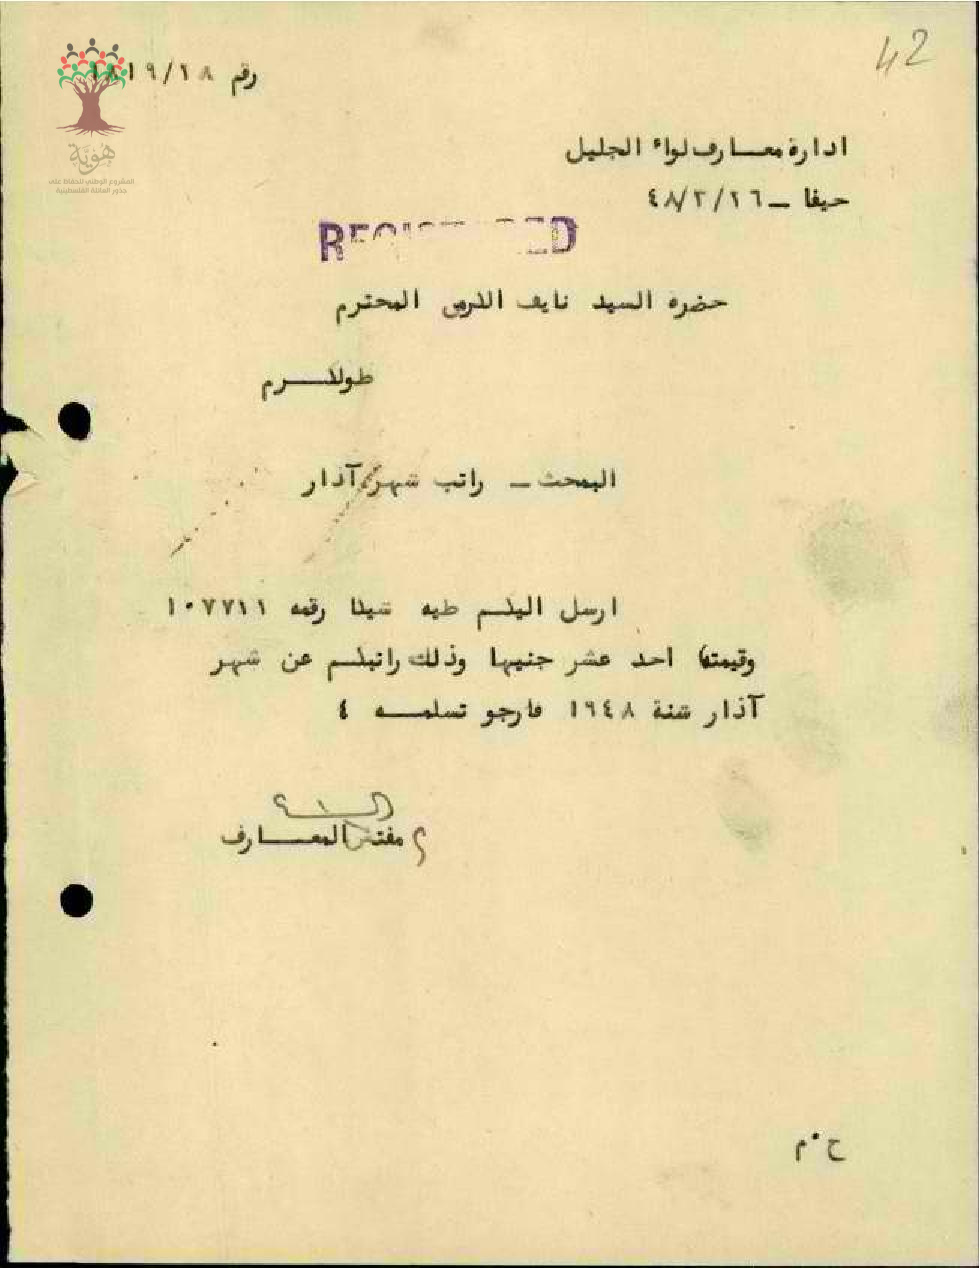 42
رقم ١٨١٩/١٨
هوية
المشروع الوطني للحفاظ على
جذور العائلة الفلسطينية
ادارة معارف لواء الجليل
حيفا - ٤٨/٣/٢٦
REGISTERED
حضرة السيد نايف المحترم
طولكرم
البحث - راتب شهر آذار
ارسل اليكم طيه شيكا رقمه ١٠٧٧١١
وقيمته احد عشر جنيها وذلك راتبكم عن شهر
آذار سنة ١٩٤٨ فارجو تسلمه ٤
مفتش المعارف
ح٠م